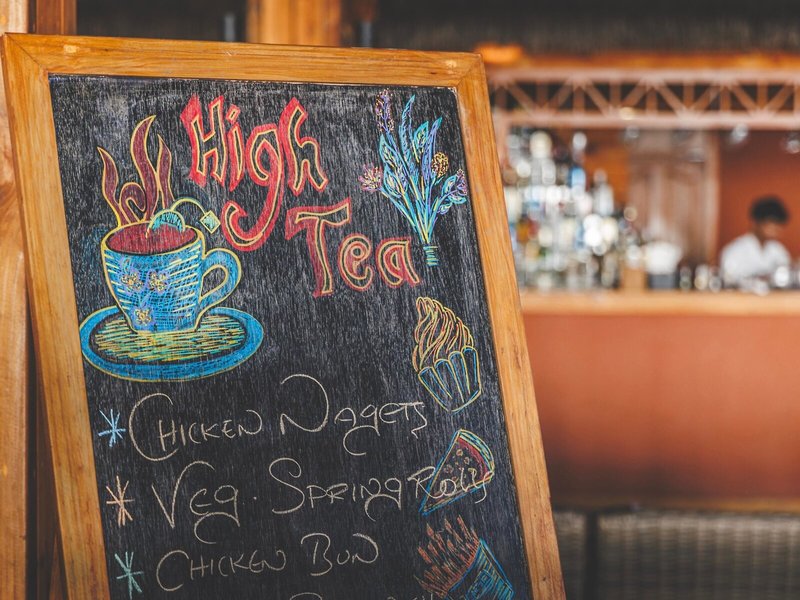 High
Tea
Chicken Nagets
Veg. Spring Rolls
Chicken Bun